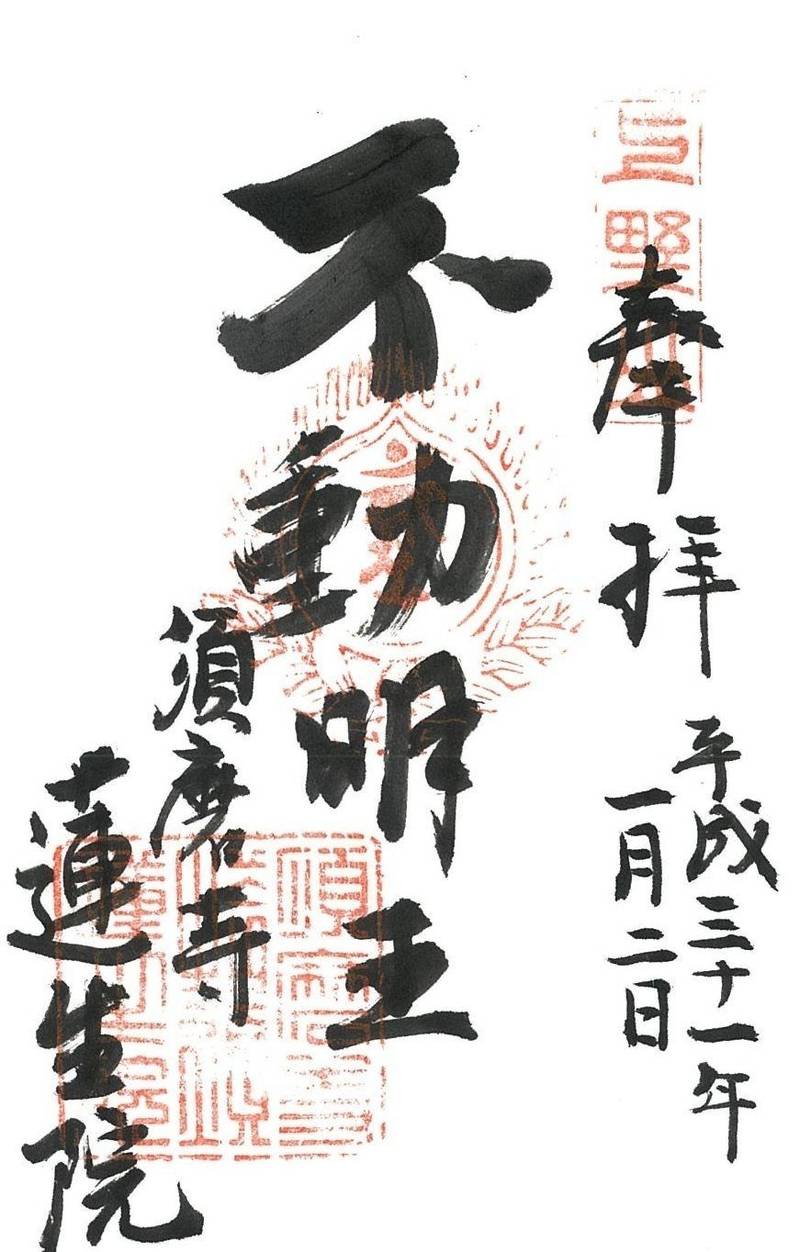 奉拝
平成三十一年
一月二日
不動明王
須磨寺
蓮生院
上野山